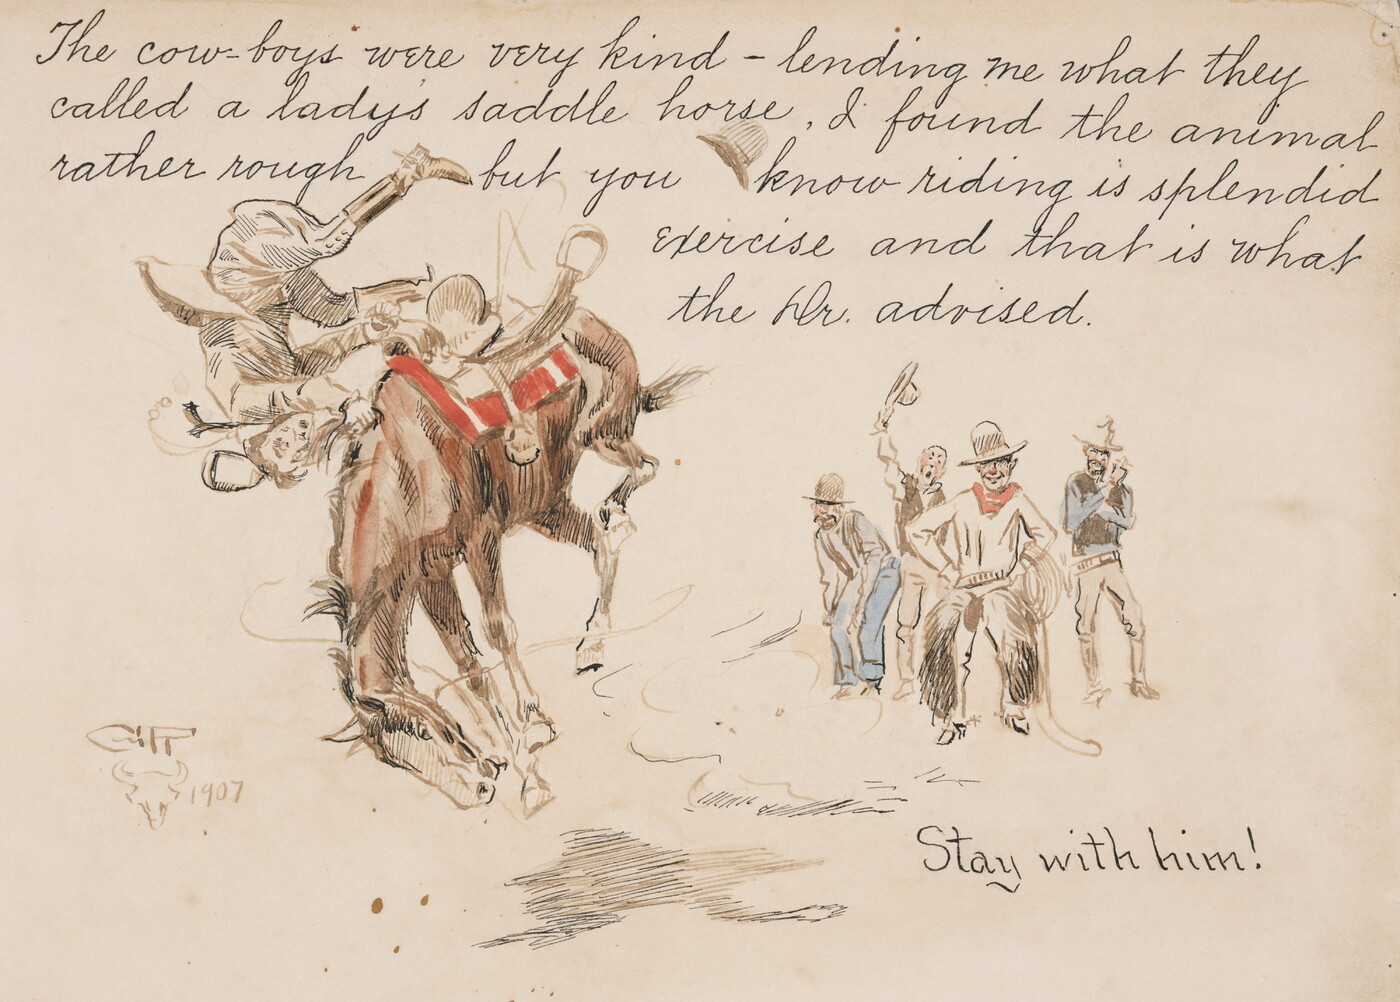 The cow-boys were very kind - lending me what they
called a lady's saddle horse, I found the animal
rather rough but you know riding is splendid
exercise and that is what
the Dr. advised.
Stay with him!
1907